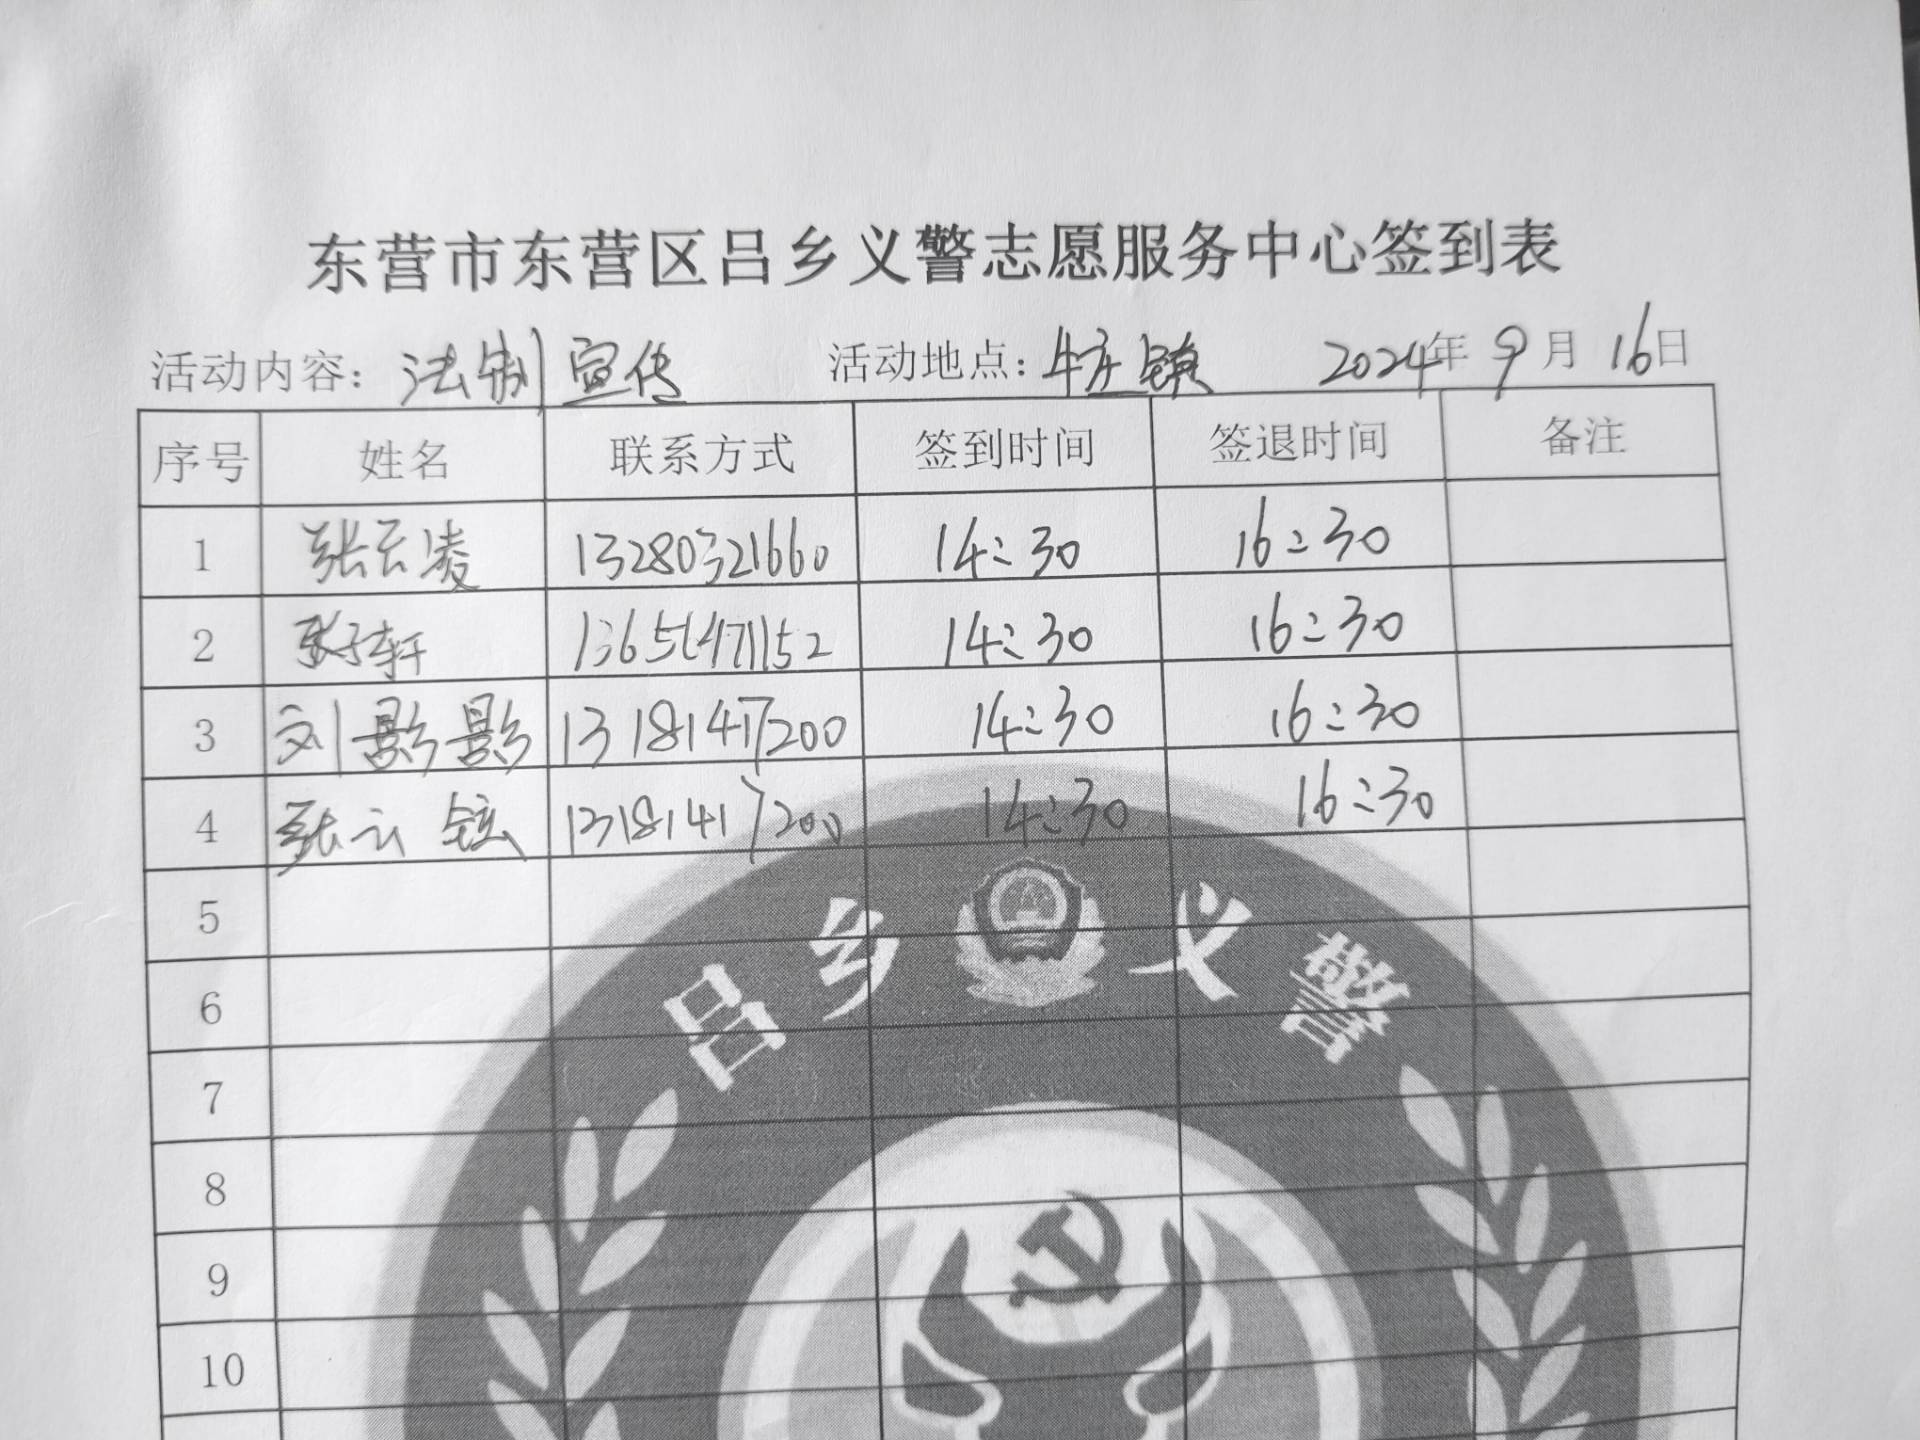 东营市东营区吕乡义警志愿服务中心签到表
活动内容：法制宣传 活动地点：牛庄镇 2024年9月16日
序号 姓名 联系方式 签到时间 签退时间 备注
1 张云凌 13280321660 14:30 16:30
2 张子轩 13651471152 14:30 16:30
3 刘影影 13181417200 14:30 16:30
4 张云铉 13181417200 14:30 16:30
5
6
7
8
9
10
吕乡义警